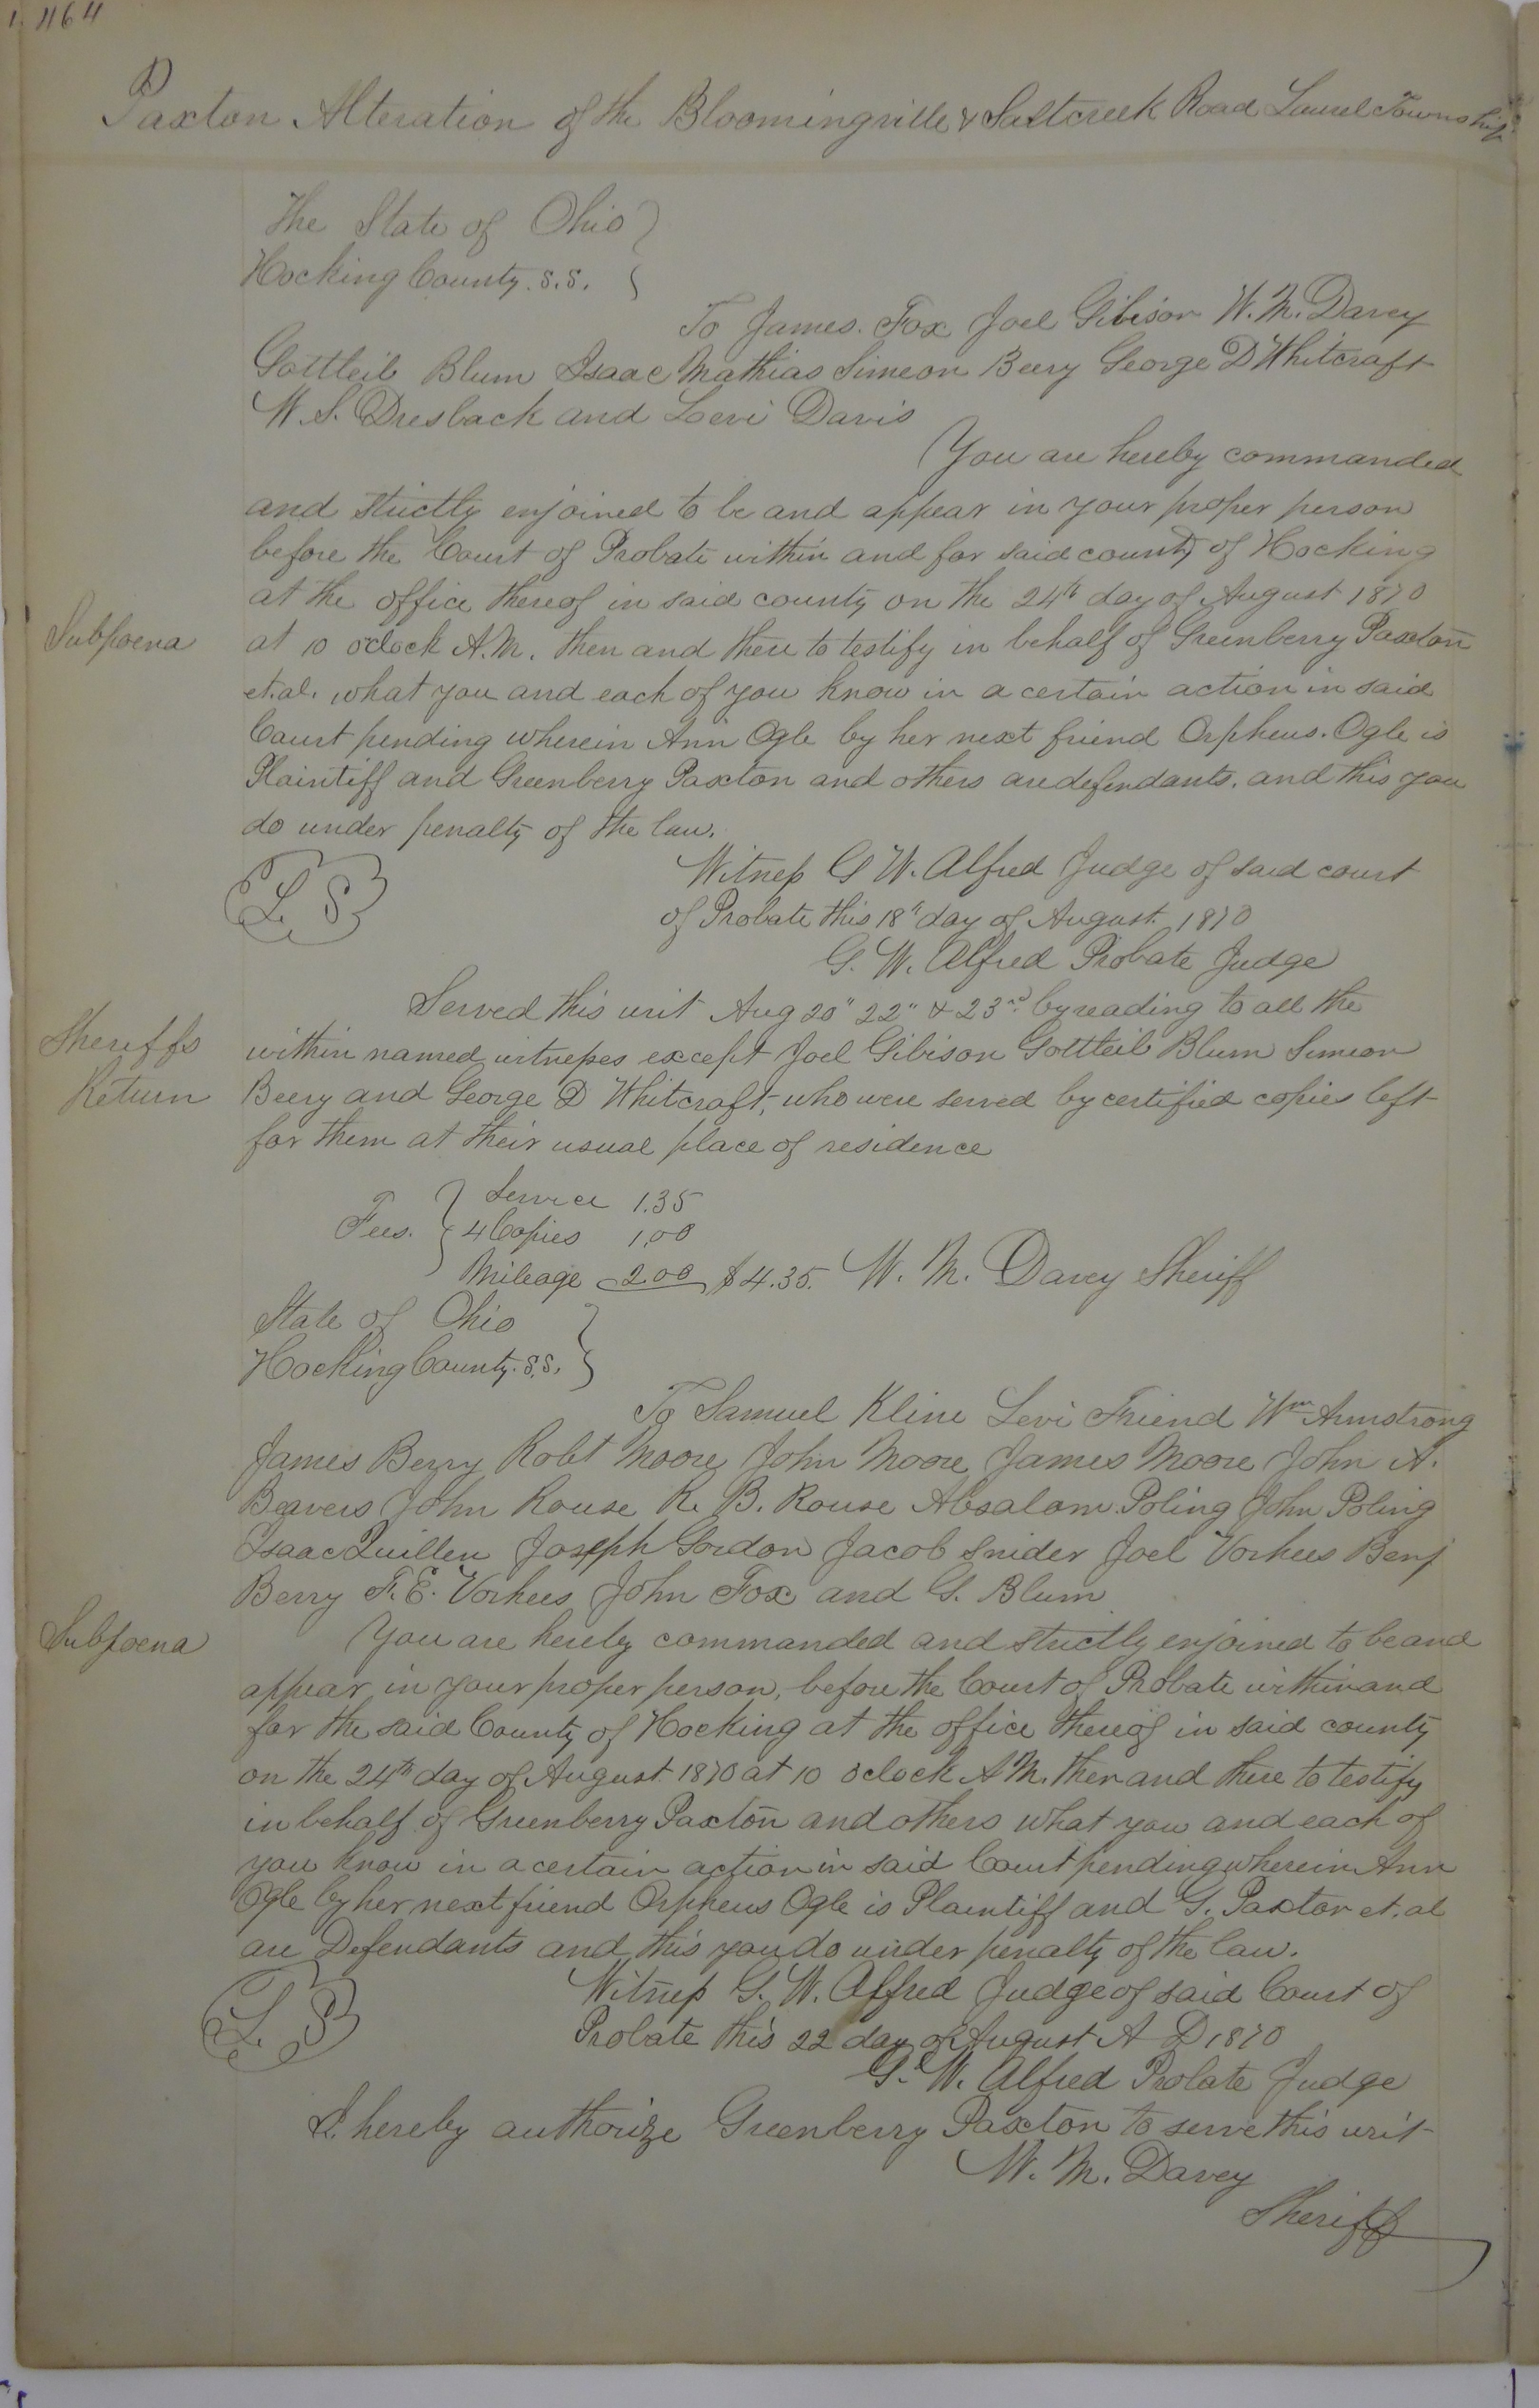 464
Paxton Alteration of the Bloomingville & Saltcreek Road Laurel Township
The State of Ohio
Hocking County. S.S.
To James. Fox Joel Gibison W. M. Davey
Gottleib Blum Isaac Mathias Simeon Beery George D Whitcraft
W. S. Dresback and Levi Davis
You are hereby commanded
and strictly enjoined to be and appear in your proper person
before the Court of Probate within and for said county of Hocking
at the office thereof in said county on the 24th day of August 1870
Subpoena
at 10 oclock A.M. then and there to testify in behalf of Greenberry Paxton
et.al. what you and each of you know in a certain action in said
Court pending wherein Ann Ogle by her next friend Orpheus. Ogle is
Plaintiff and Greenberry Paxton and others are defendants. and this you
do under penalty of the law.
L S
Witness G W. Alfred Judge of said court
of Probate this 18th day of August. 1870
G. W. Alfred Probate Judge
Sheriffs Return
Served this writ Aug 20" 22" & 23rd by reading to all the
within named witnesses except Joel Gibison Gottleib Blum Simeon
Beery and George D Whitcraft, who were served by certified copies left
for them at their usual place of residence
Service 1.35
Fees. 4 Copies 1,00
Mileage 2.00 $4.35. W. M. Davey Sheriff
State of Ohio
Hocking County. S.S.
To Samuel Kline Levi Friend Wm Armstrong
James Berry Robt Moore John Moore James Moore John A.
Beavers John Rouse R. B. Rouse Absalom Poling John Poling
Isaac Quillen Joseph Gordon Jacob Snider Joel Vorhees Benj
Berry F. E. Vorhees John Fox and G. Blum
Subpoena
You are hereby commanded and strictly enjoined to be and
appear in your proper person, before the Court of Probate within and
for the said County of Hocking at the office thereof in said county
on the 24th day of August 1870 at 10 oclock A M. then and there to testify
in behalf of Greenberry Paxton and others what you and each of
you know in a certain action in said Court pending wherein Ann
Ogle by her next friend Orpheus Ogle is Plaintiff and G. Paxton et. al
are Defendants and this you do under penalty of the law.
L. S
Witness G. W. Alfred Judge of said Court of
Probate this 22 day of August A D 1870
G. W. Alfred Probate Judge
I hereby authorize Greenberry Paxton to serve this writ
W. M. Davey
Sheriff